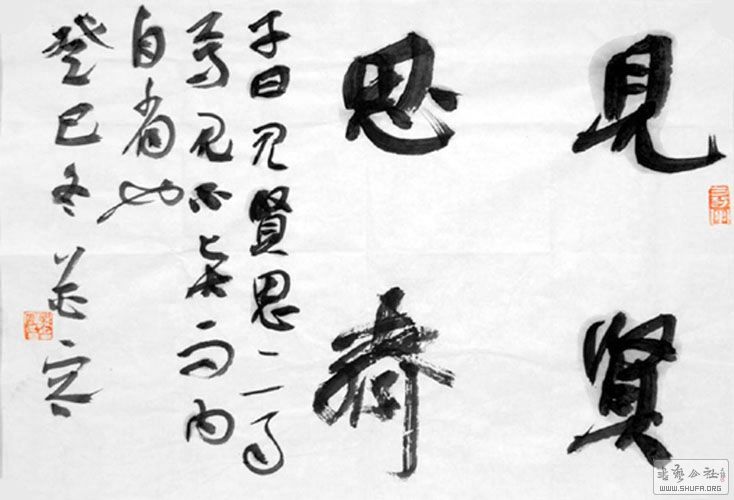 見賢
思齊
子曰见賢思齊
焉见不贤而内
自省也
癸巳冬
书艺公社
WWW.SHUFA.ORG